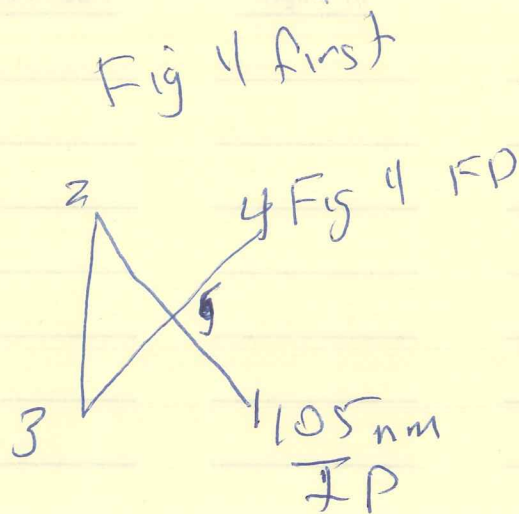 Fig 4 first
2
4 Fig 4 FP
5
3
1 105 nm
IP